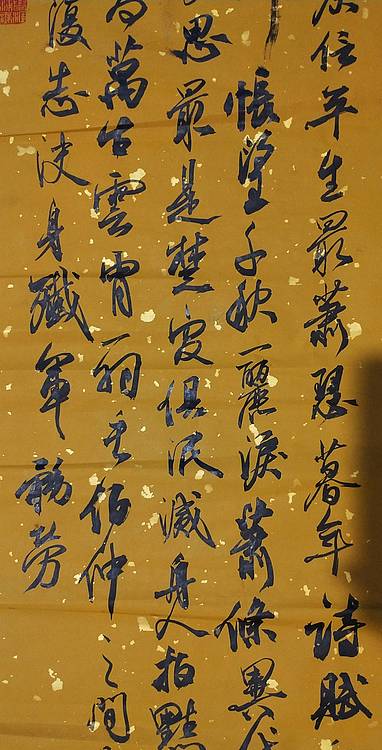 信平生最蕭瑟暮年詩賦
悵望千秋一灑淚蕭條異代
思最是楚宮俱泯滅舟人指點
萬古雲霄一羽毛伯仲之間
復志決身殲軍務勞